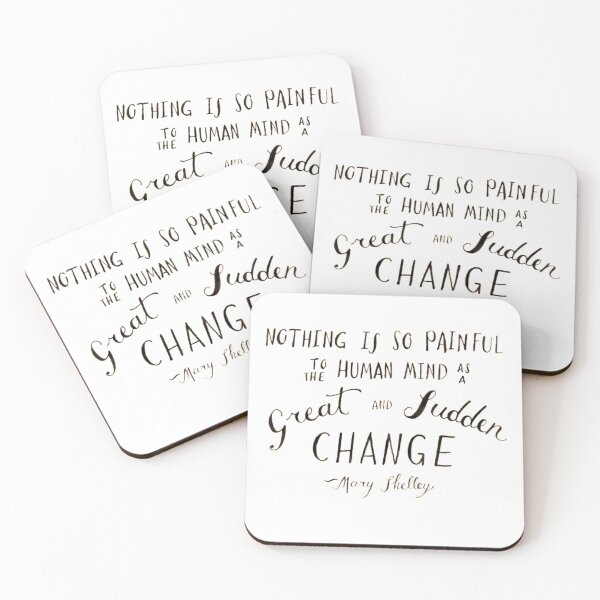 NOTHING IS SO PAINFUL
TO THE HUMAN MIND AS A
Great AND
NOTHING IS SO PAINFUL
TO THE HUMAN MIND AS A
Great AND Sudden
CHANGE
NOTHING IS SO PAINFUL
TO THE HUMAN MIND AS A
Great AND Sudden
CHANGE
~Mary Shelley
NOTHING IS SO PAINFUL
TO THE HUMAN MIND AS A
Great AND Sudden
CHANGE
~Mary Shelley